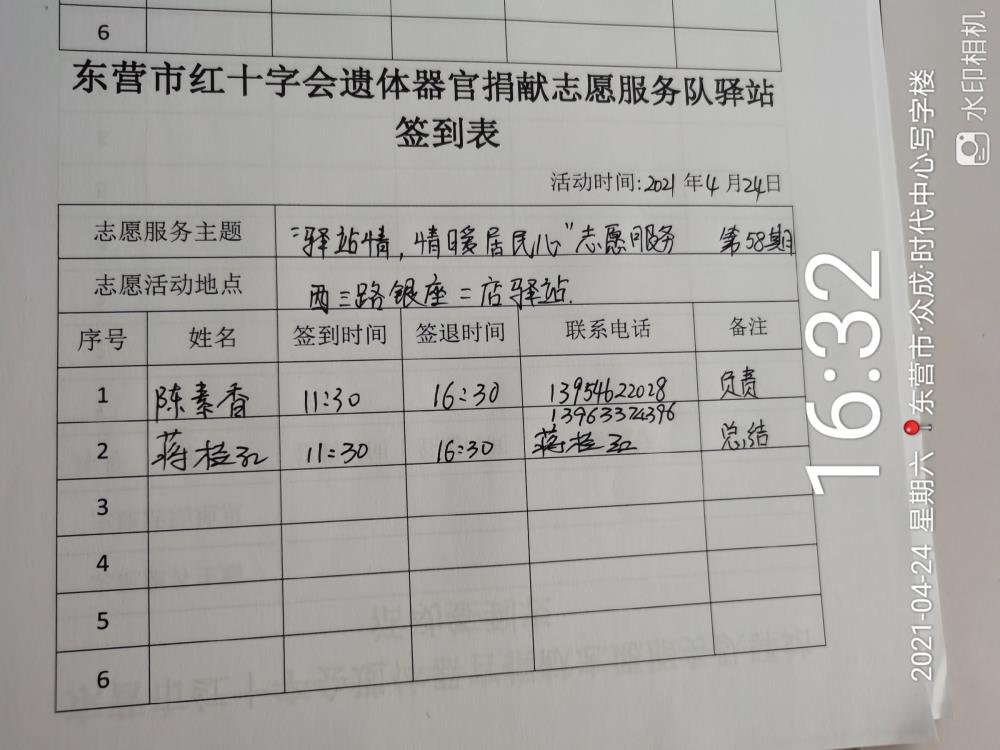 6
东营市红十字会遗体器官捐献志愿服务队驿站
签到表
活动时间:2021 年 4 月 24日
志愿服务主题 “驿站情，情暖居民心”志愿服务 第58期
志愿活动地点 西三路银座二店驿站.
序号 姓名 签到时间 签退时间 联系电话 备注
1 陈素香 11:30 16:30 13954622028 负责
13963374396
2 蒋桂红 11:30 16:30 蒋桂红 总结
3
4
5
6
16:32
2021-04-24 星期六 东营市·众成·时代中心写字楼
水印相机